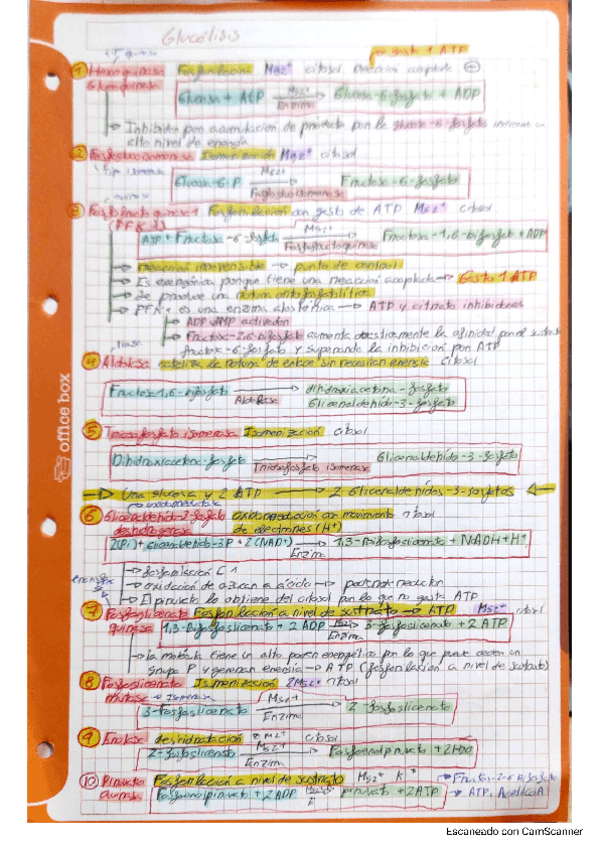 Glucólisis
gasta 1 ATP
① Hexoquinasa Fosforilación Mg2+ citosol Reacción acoplada
Glucoquinasa
Glucosa + ATP Mg2+ Enzima Glucosa-6-fosfato + ADP
Inhibida por acumulación de producto por la glucosa-6-fosfato
alto nivel de energía
② Fosfoglucoisomerasa Isomerización Mg2+ citosol
Glucosa-6-P Mg2+ Fosfoglucoisomerasa Fructosa-6-fosfato
③ Fosfofructoquinasa 1 Fosforilación con gasto de ATP Mg2+ citosol
(PFK 1)
ATP + Fructosa-6-fosfato Mg2+ Fosfofructoquinasa Fructosa-1,6-bifosfato + ADP
reacción irreversible → punto de control
Es exergónica porque tiene una reacción acoplada → Gasta 1 ATP
Se produce una
PFK 1 es una enzima alostérica → ATP y citrato inhibidores
ADP y AMP activador
Fructosa-2,6-bifosfato aumenta drásticamente la afinidad por el sustrato
fructosa-6-fosfato y superando la inhibición por ATP
liasa
④ Aldolasa cataliza la rotura de enlace sin necesitar energía citosol
Fructosa 1,6-bifosfato Aldolasa dihidroxiacetona-fosfato
Gliceraldehído-3-fosfato
⑤ Triosafosfato isomerasa Isomerización citosol
Dihidroxiacetona-fosfato Triosafosfato isomerasa Gliceraldehído-3-fosfato
Una glucosa y 2 ATP → 2 Gliceraldehídos-3-fosfatos
oxidorreductasa
⑥ Gliceraldehído-3-fosfato oxidorreducción con movimiento citosol
deshidrogenasa de electrones (H+)
2(Pi) + Gliceraldehído-3P + 2(NAD+) Enzima 1,3-Bifosfoglicerato + NADH + H+
fosforilación C1
oxidación de azúcar a ácido →
El fosfato lo obtiene del citosol por lo que no gasta ATP
⑦ Fosfoglicerato Fosforilación a nivel de sustrato → ATP Mg2+ citosol
quinasa 1,3-Bifosfoglicerato + 2 ADP Mg2+ Enzima 3-Fosfoglicerato + 2 ATP
la molécula tiene un alto poder energético por lo que puede ceder un
grupo P y generar energía → ATP (fosforilación a nivel de sustrato)
⑧ Fosfoglicerato Isomerización 2Mg2+ citosol
mutasa → Isomerasa
3-Fosfoglicerato Mg2+ Enzima 2-fosfoglicerato
⑨ Enolasa deshidratación 2 Mg2+ citosol
2-fosfoglicerato Mg2+ Enzima Fosfoenolpiruvato + 2H2O
⑩ Piruvato Fosforilación a nivel de sustrato Mg2+ K+
quinasa Fosfoenolpiruvato + 2ADP Mg2+ E piruvato + 2ATP
ATP, AcetilCoA
office box
Escaneado con CamScanner